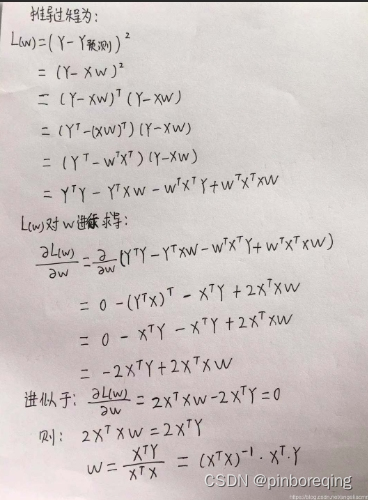 推导过程为:
L(w)=(Y-Y预测)²
=(Y-XW)²
=(Y-XW)ᵀ(Y-XW)
=(Yᵀ-(XW)ᵀ)(Y-XW)
=(Yᵀ-WᵀXᵀ)(Y-XW)
=YᵀY-YᵀXW-WᵀXᵀY+WᵀXᵀXW
L(w)对W进行求导:
∂L(w)/∂w=∂/∂w(YᵀY-YᵀXW-WᵀXᵀY+WᵀXᵀXW)
=0-(YᵀX)ᵀ-XᵀY+2XᵀXW
=0-XᵀY-XᵀY+2XᵀXW
=-2XᵀY+2XᵀXW
进似于:∂L(w)/∂w=2XᵀXW-2XᵀY=0
则:2XᵀXW=2XᵀY
W=XᵀY/XᵀX=(XᵀX)⁻¹·Xᵀ·Y
CSDN @pinboreqing